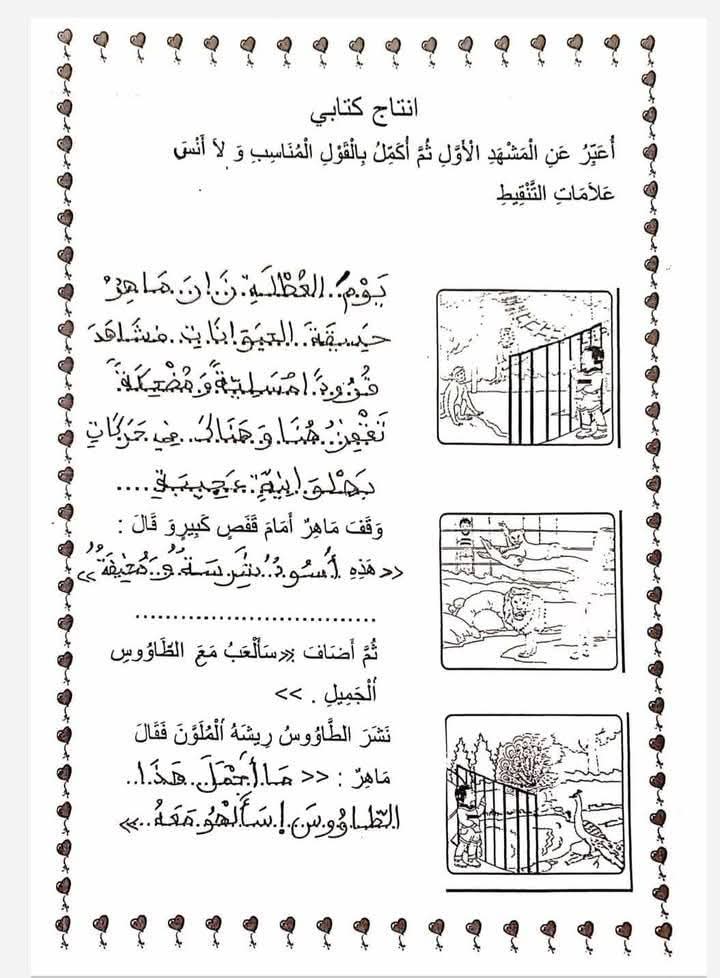 انتاج كتابي
أُعَبِّرُ عَنِ الْمَشْهَدِ الْأَوَّلِ ثُمَّ أُكَمِّلُ بِالْقَوْلِ الْمُنَاسِبِ وَ لاَ أَنْسَ
عَلاَمَاتِ التَّنْقِيطِ
يَوْمَ العُطْلَةِ زَارَ مَاهِرُ
حَدِيقَةَ الحَيَوَانَاتِ فشَاهَدَ
قُرُودًا مُسَلِّيَةً وَ مُضْحِكَةً
تَقْفِزُ هُنَا وَ هُنَاكَ فِي حَرَكَاتٍ
بَهْلَوَانِيَّةٍ عَجِيبَةٍ....
وَقَفَ مَاهِرٌ أَمَامَ قَفَصٍ كَبِيرٍ وَ قَالَ :
<< هَذِهِ أُسُودٌ شَرِسَةٌ وَ مُخِيفَةٌ >>
ثُمَّ أَضَافَ << سَأَلْعَبُ مَعَ الطَّاوُوسِ
الْجَمِيلِ . >>
نَشَرَ الطَّاوُوسُ رِيشَهُ الْمُلَوَّنَ فَقَالَ
مَاهِرٌ : << مَا أَجْمَلَ هَذَا..
الطَّاوُوسَ! سَأَلْهُو مَعَهُ..>>